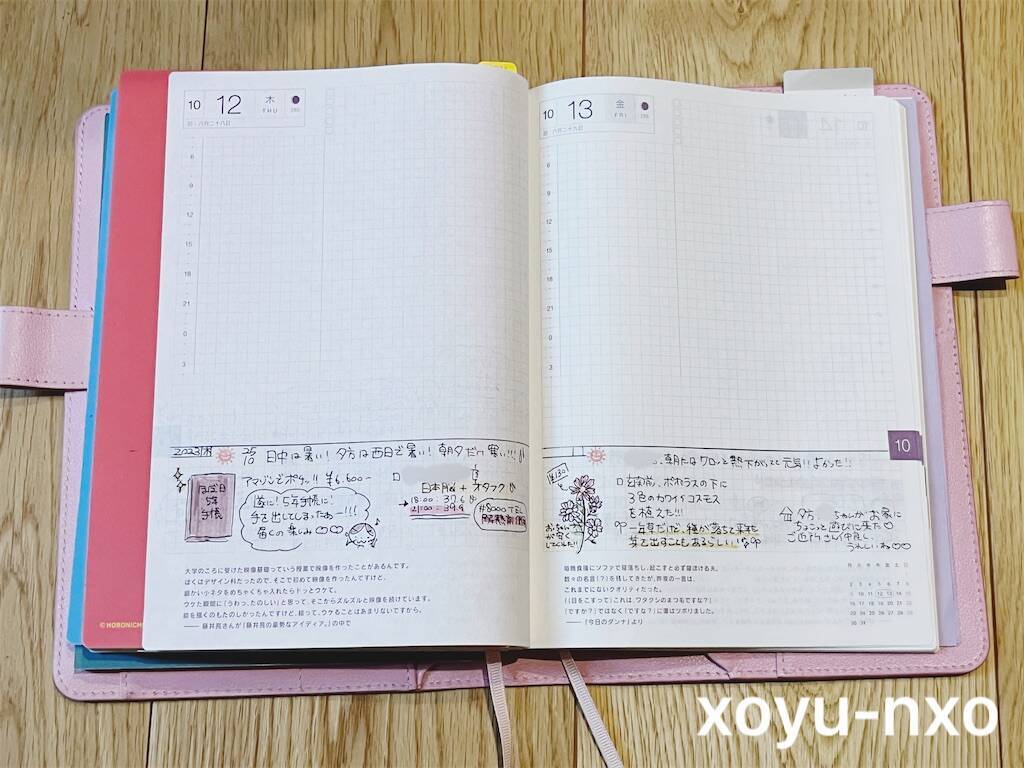 10 12 木 THU
旧・八月二十八日
6
9
12
15
18
21
0
3
2023/木
日中は暑い!夕方は西日で暑い!朝夕だけ寒い!!!
アマゾンでポチッ!! ¥6,600-
ほぼ日
5年
手帳
遂に!5年手帳に!
手を出してしまったわー!!!
届くの楽しみ♡♡
18:00:37.6
21:00:39.9
#8000 TEL
大学のころに受けた映像基礎っていう授業で映像を作ったことがあるんです。
ぼくはデザイン科だったので、そこで初めて映像を作ったんですけど、
細かい小ネタをめちゃくちゃ入れたらドッとウケて。
ウケた瞬間に「うわっ、たのしい」と思って、そこからズルズルと映像を続けています。
絵を描くのもたのしかったんですけど、絵って、ウケることはあまりないですから。
—— 藤井亮さんが『藤井亮の豪勢なアイディア。』の中で
© HOBONICHI
10 13 金 FRI
旧・八月二十九日
6
9
12
15
18
21
0
3
10
朝にはケロッと熱下がってて元気!!よかった!!
¥130
□玄関前、ポポラスの下に
3色のカワイイコスモス
を植えた!!!
一年草だけど、種が落ちて来年
芽を出すこともあるらしい!
夕方
ちゃんがお家に
ちょこっと遊びに来た♡
ご近所さん仲良し、
うれしいね♡♡
暗闇食後にソファで寝落ちし、起こすと必ず寝ぼける夫。
数々の名言(?)を残してきたが、昨夜の一言は、
これまでにないクオリティだった。
「(目をこすって)これは、ワタクシのまつ毛ですな?」
「ですか?」ではなく「ですな?」に妻はツボりました。
——『今日のダンナ』より
月 火 水 木 金 土 日
2 3 4 5 6 7 8
9 10 11 12 13 14 15
16 17 18 19 20 21 22
23 24 25 26 27 28 29
30 31
xoyu-nxo